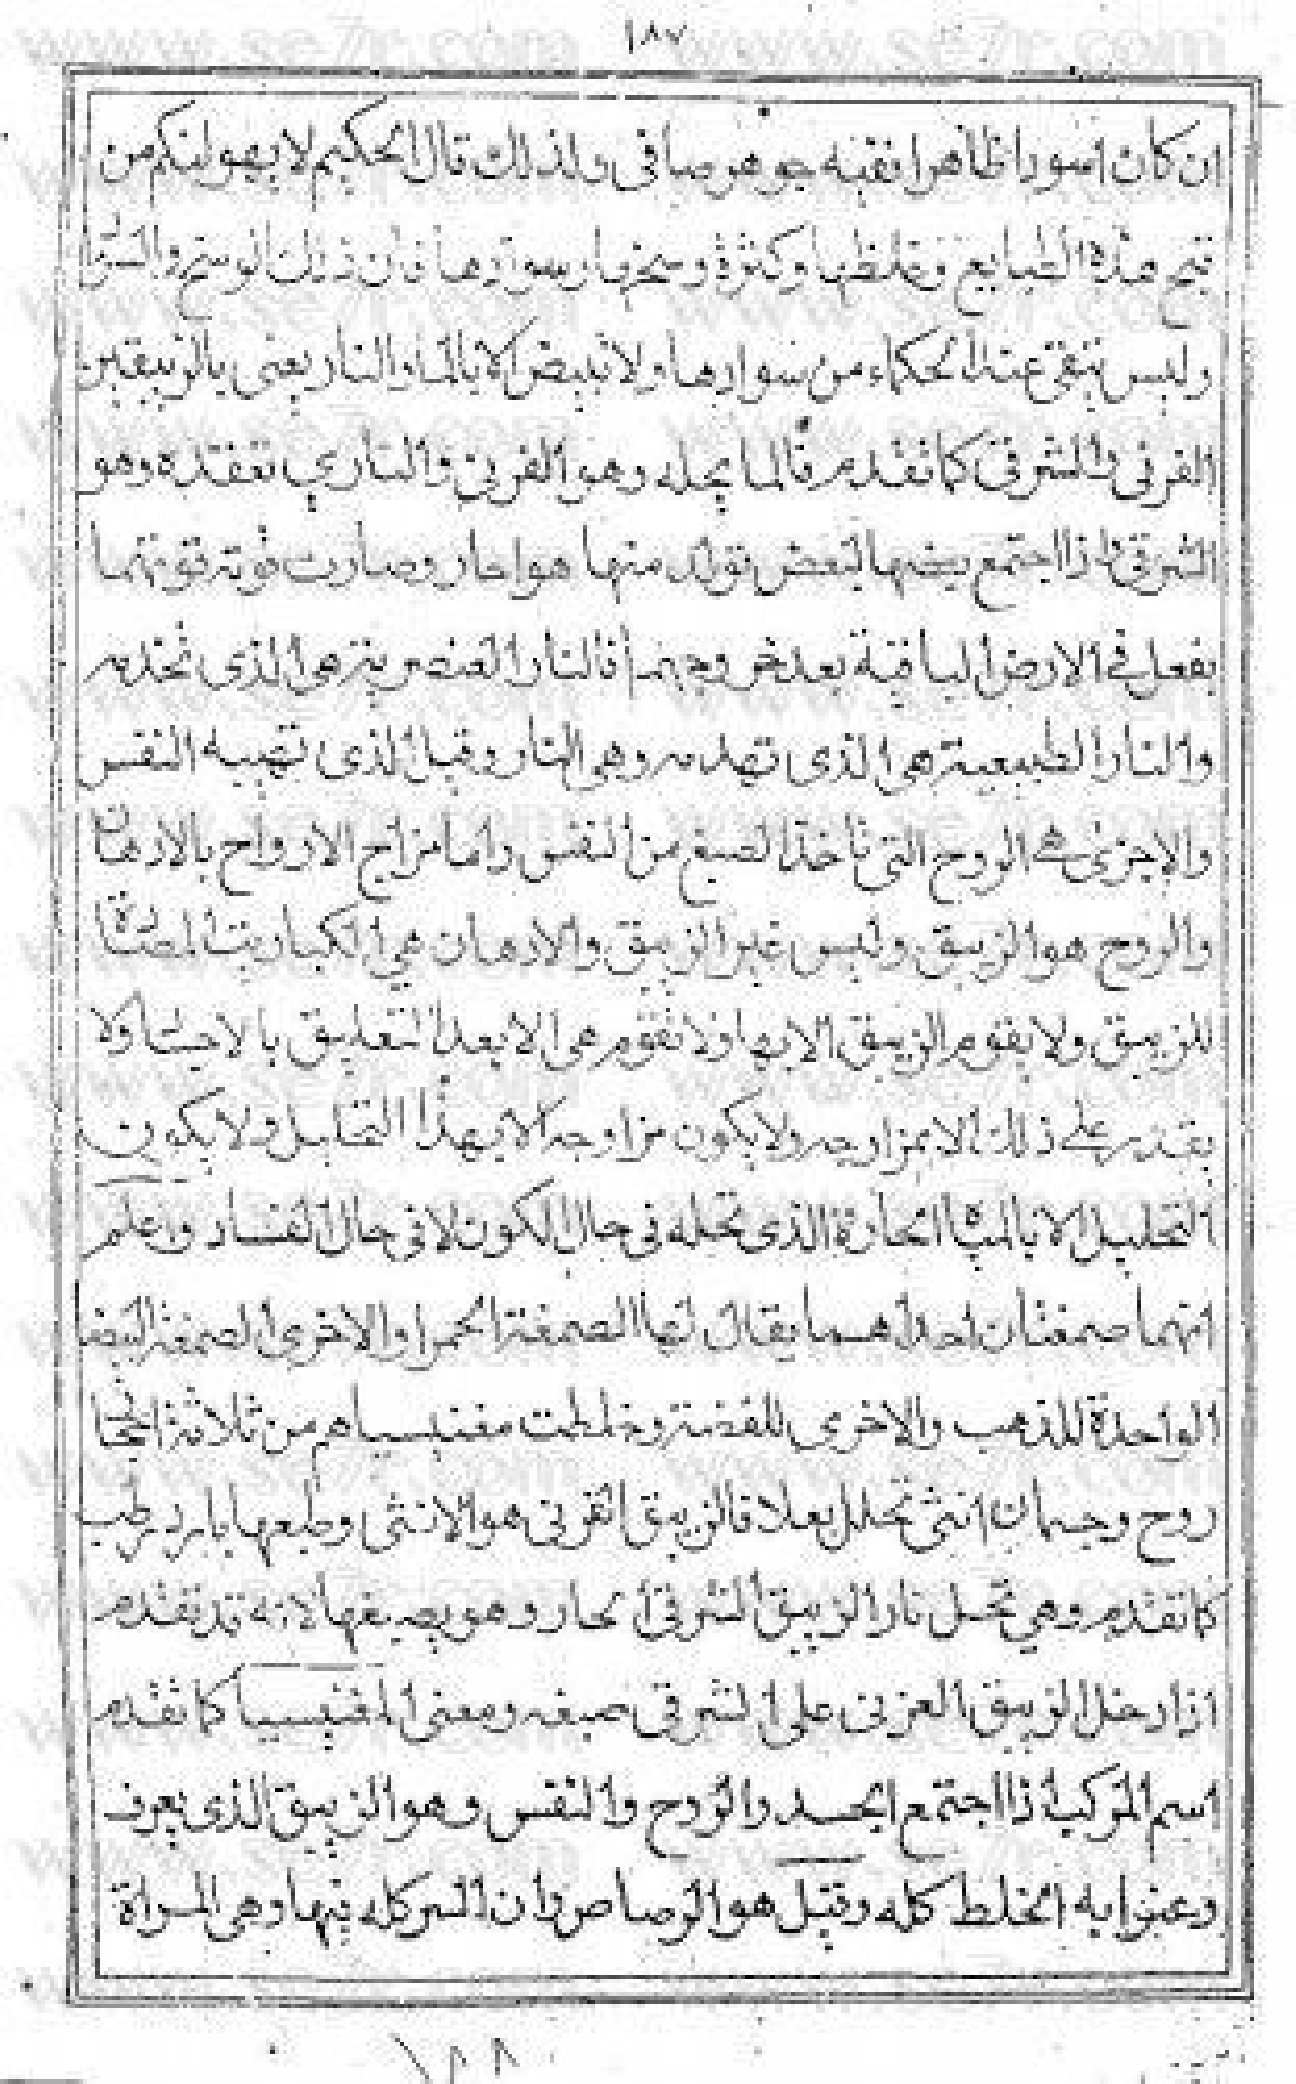 ١٨٧
ان كان اسودا ظاهرا ففيه جوهر صافى ولذلك قال الحكيم لا يهولنكم من
هذه الطبايع وغلظها وكثرة وسخها وسوادها فان ذلك الوسخ والسواد
وليس تنقى عند الحكماء من سوادها ولا تبيض الا بالما والنار يعنى بالزيبقين
الغربى والشرقى كما تقدم فالما يحله وهو الغربى والنارى تعقده وهو
الشرقى اذا اجتمع بعضها لبعض تولد منها هوا حار وصارت قوته قوتهما
يفعل فى الارض الباقية بعد خروجهما فالنار العنصرية هى الذى تخدم
والنار الطبيعية هى الذى تهدم وهى النار وقيل الذى تهبيه النفس
والاخرى هى الروح التى تأخذ الصبغ من النفس واما مزاج الارواح بالادهان
والروح هو الزيبق وليس غير الزيبق والادهان هى الكباريت
للزيبق ولا يقوم الزيبق الا بها ولا تقوم هى الا بعد التعليق بالاجساد ولا
يقدر على ذلك الا بمزاوجه ولا يكون مزاوجه الا بهذا التحليل ولا يكون
التحليل الا بالمياه الحارة الذى تحله فى حال الكون لا فى حال الفساد واعلم
انهما صمغتان احداهما يقال لها الصمغة الحمرا والاخرى الصمغة البيضا
الواحدة للذهب والاخرى للفضة وخلطت مغنيسياهم من ثلاثة
روح وجسدان انثى تحلل بعلا فالزيبق الغربى هو الانثى وطبعها بارد رطب
كما تقدم وهى تحل نار الزيبق الشرقى الحار وهو يصبغها لانه قد تقدم
اذا دخل الزيبق الغربى على الشرقى صبغه ومعنى المغنيسيا كما تقدم
اسم المركب اذا اجتمع الجسد والروح والنفس وهو الزيبق الذى يعرف
وعنوا به الخلط كله وقيل هو الرصاص وان السر كله فيها وهى المراة
١٨٨